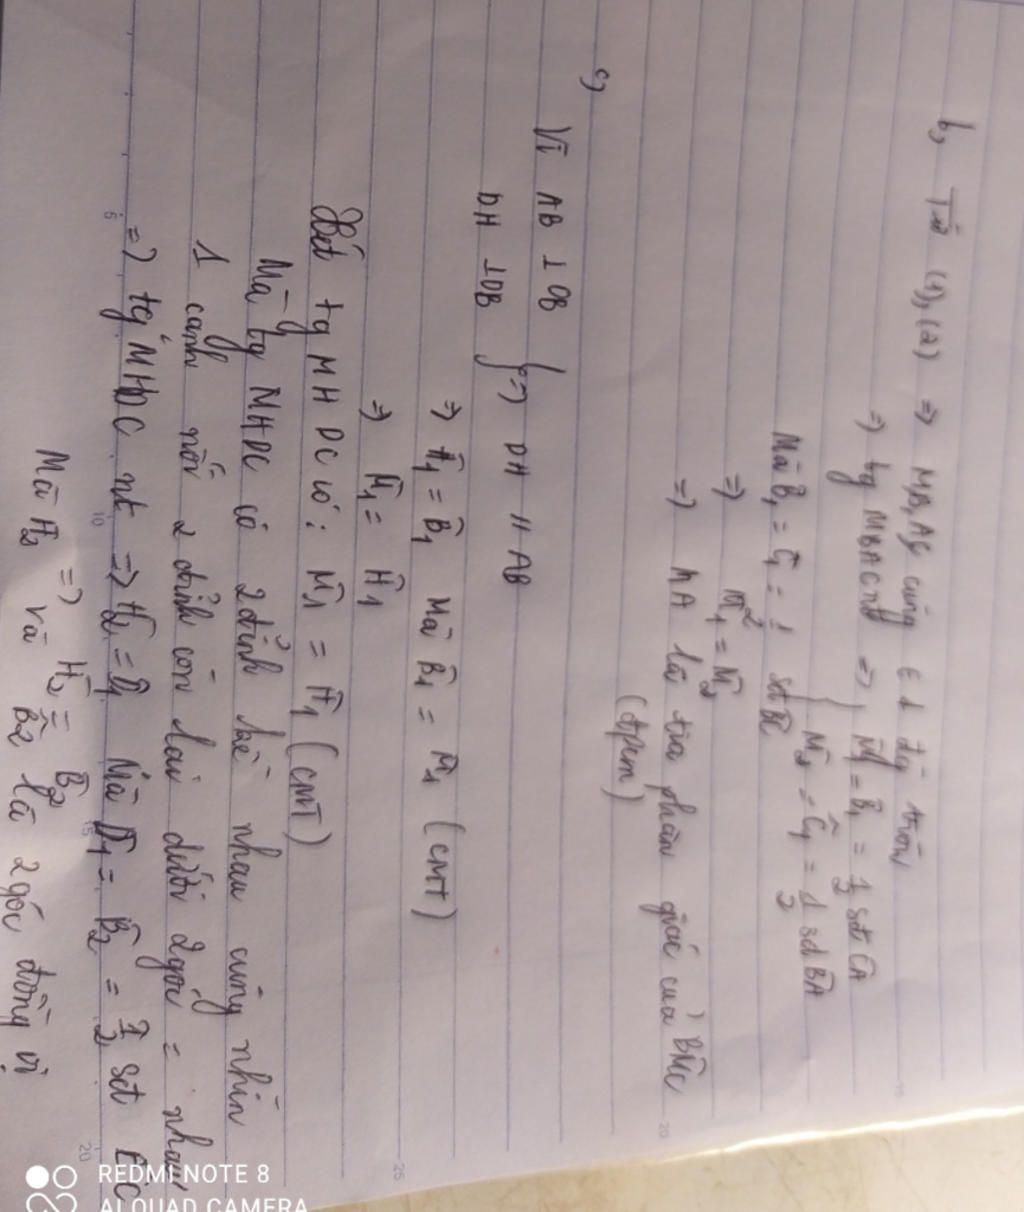 b, Từ (1), (2) => M,B,A,C cùng ∈ 1 đg tròn
=> tg MBAC nt => { M̂1 = B̂1 = 1/2 sđ CA
M̂2 = Ĉ1 = 1/2 sđ BA
Mà B̂1 = Ĉ1 = 1/2 sđ BC
=> M̂1 = M̂2
=> MA là tia phân giác của BM̂C
(đpcm)
c)
Vì AB ⊥ OB
DH ⊥ OB } => DH // AB
=> Ĥ1 = B̂1 Mà B̂1 = M̂1 (CMT)
=> M̂1 = Ĥ1
Xét tg MHDC có: M̂1 = Ĥ1 (CMT)
Mà tg MHDC có 2 đỉnh kề nhau cùng nhìn
1 cạnh nối 2 đỉnh còn lại dưới 2 góc = nhau
=> tg MHDC nt => Ĥ2 = D̂1 Mà D̂1 = B̂2 = 1/2 sđ EC
=> Ĥ2 = B̂2
Mà H2 và B2 là 2 góc đồng vị
REDMI NOTE 8
AI QUAD CAMERA